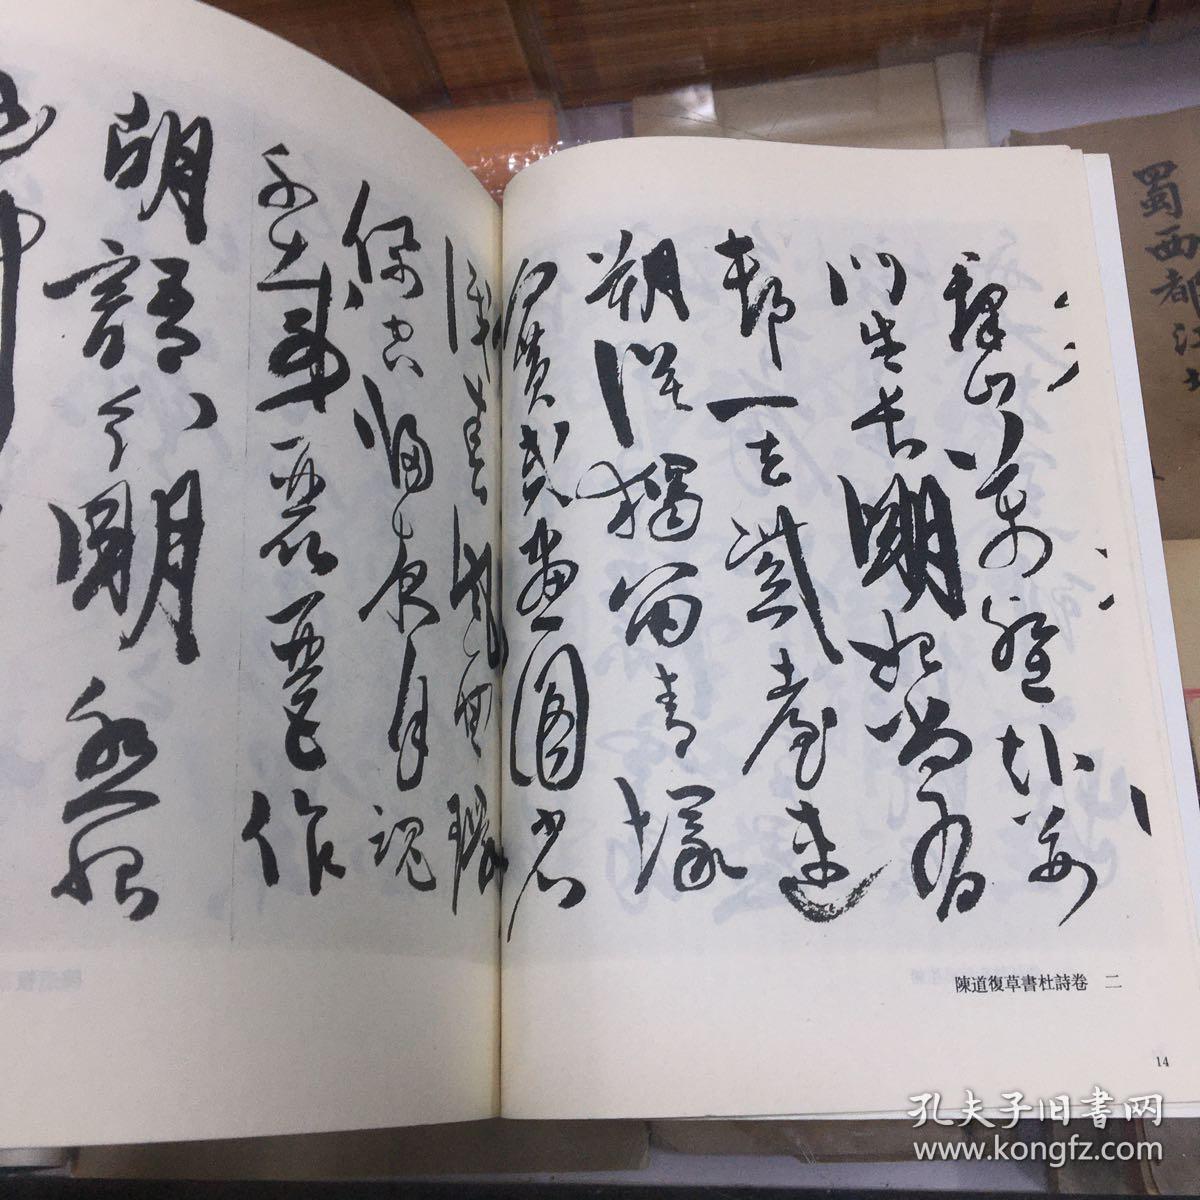 群山萬壑赴荊
門生長明妃尚有
邨一去紫臺連
朔漠獨留青塚
向黃昏畫圖省
識春風面環
佩空歸夜月魂
千載琵琶作
胡語分明怨恨
曲中
陳道復草書杜詩卷 二
14
蜀西都江
孔夫子旧书网
www.kongfz.com